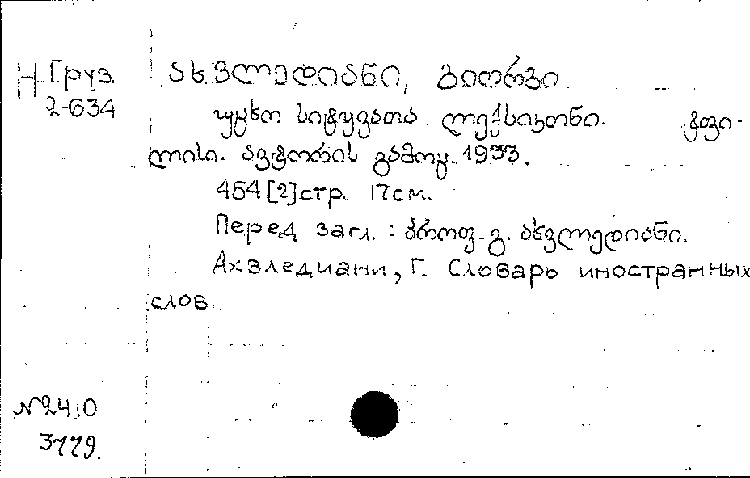 Н Груз
2-634
ახვლედიანი, გიორგი
უცხო სიტყვათა ლექსიკონი. ტფი-
ლისი. ავტორის გამოც. 1933.
454[2]стр. 17см.
Перед загл.: პროფ. გ. ახვლედიანი.
Ахвледиани, Г. Словарь иностранных
слов
3779.